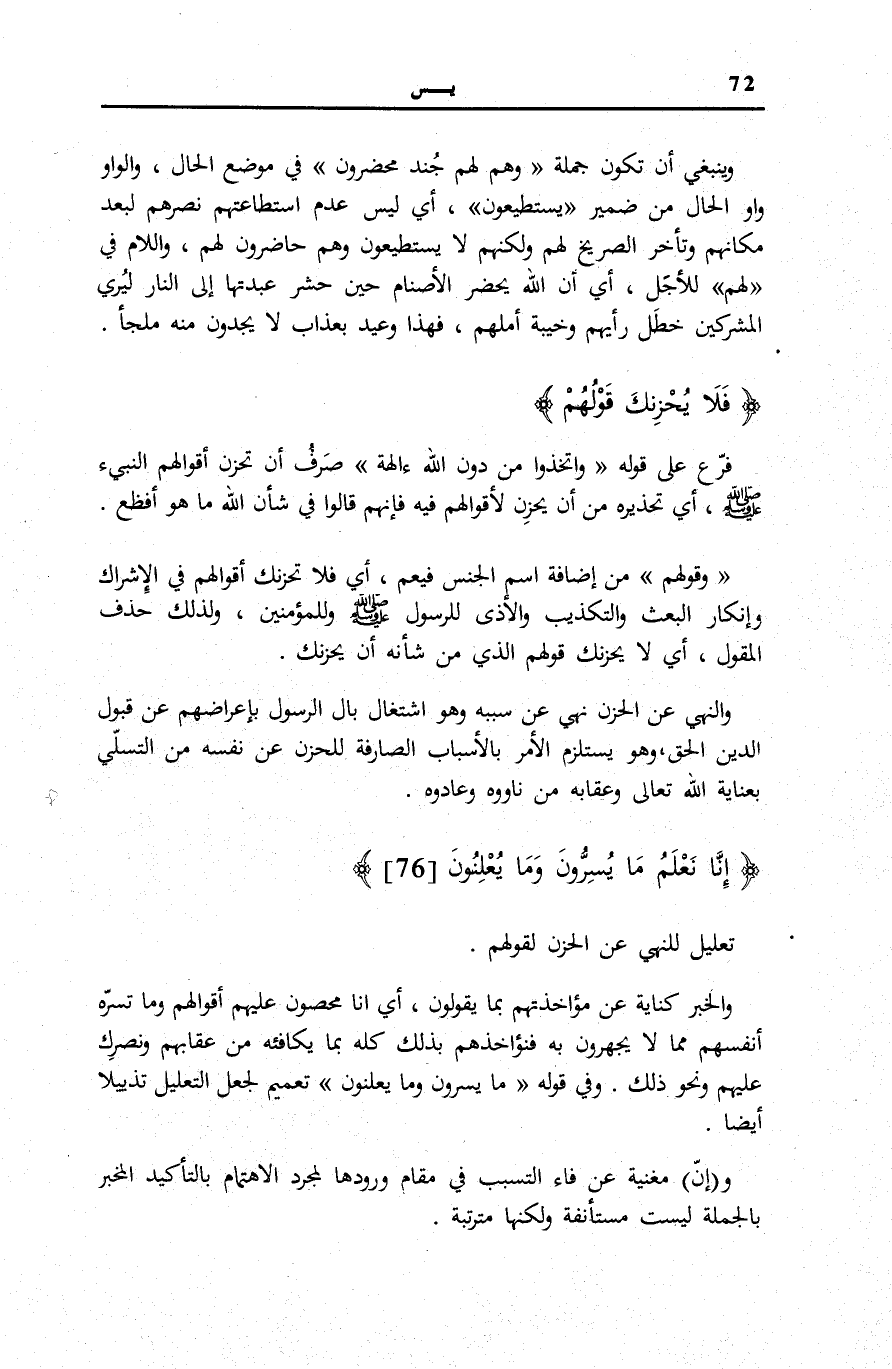 72
يــس
وينبغي أن تكون جملة « وهم لهم جُند محضرون » في موضع الحال ، والواو
واو الحال من ضمير «يستطيعون» ، أي ليس عدم استطاعتهم نصرهم لبعد
مكانهم وتأخر الصريخ لهم ولكنهم لا يستطيعون وهم حاضرون لهم ، واللام في
«لهم» للأجَل ، أي أن الله يحضر الأصنام حين حشر عبدتها إلى النار ليُري
المشركين خطَل رأيهم وخيبة أملهم ، فهذا وعيد بعذاب لا يجدون منه ملجأ .
﴿ فَلَا يُحْزِنكَ قَوْلُهُمْ ﴾
فرّع على قوله « واتخذوا من دون الله ءالهة » صَرفُ أن تحزن أقوالهم النبيء
ﷺ ، أي تحذيره من أن يحزن لأقوالهم فيه فإنهم قالوا في شأن الله ما هو أفظع .
« وقولهم » من إضافة اسم الجنس فيعم ، أي فلا تحزنك أقوالهم في الإشراك
وإنكار البعث والتكذيب والأذى للرسول ﷺ وللمؤمنين ، ولذلك حذف
المقول ، أي لا يحزنك قولهم الذي من شأنه أن يحزنك .
والنهي عن الحزن نهي عن سببه وهو اشتغال بال الرسول بإعراضهم عن قبول
الدين الحق،وهو يستلزم الأمر بالأسباب الصارفة للحزن عن نفسه من التسلّي
بعناية الله تعالى وعقابه من ناووه وعادوه .
﴿ إِنَّا نَعْلَمُ مَا يُسِرُّونَ وَمَا يُعْلِنُونَ [76] ﴾
تعليل للنهي عن الحزن لقولهم .
والخبر كناية عن مؤاخذتهم بما يقولون ، أي انا محصون عليهم أقوالهم وما تسرّه
أنفسهم مما لا يجهرون به فنؤاخذهم بذلك كله بما يكافئه من عقابهم ونصرك
عليهم ونحو ذلك . وفي قوله « ما يسرون وما يعلنون » تعميم لجعل التعليل تذييلا
أيضا .
و(إنّ) مغنية عن فاء التسبب في مقام ورودها لمجرد الاهتمام بالتأكيد المخبر
بالجملة ليست مستأنفة ولكنها مترتبة .